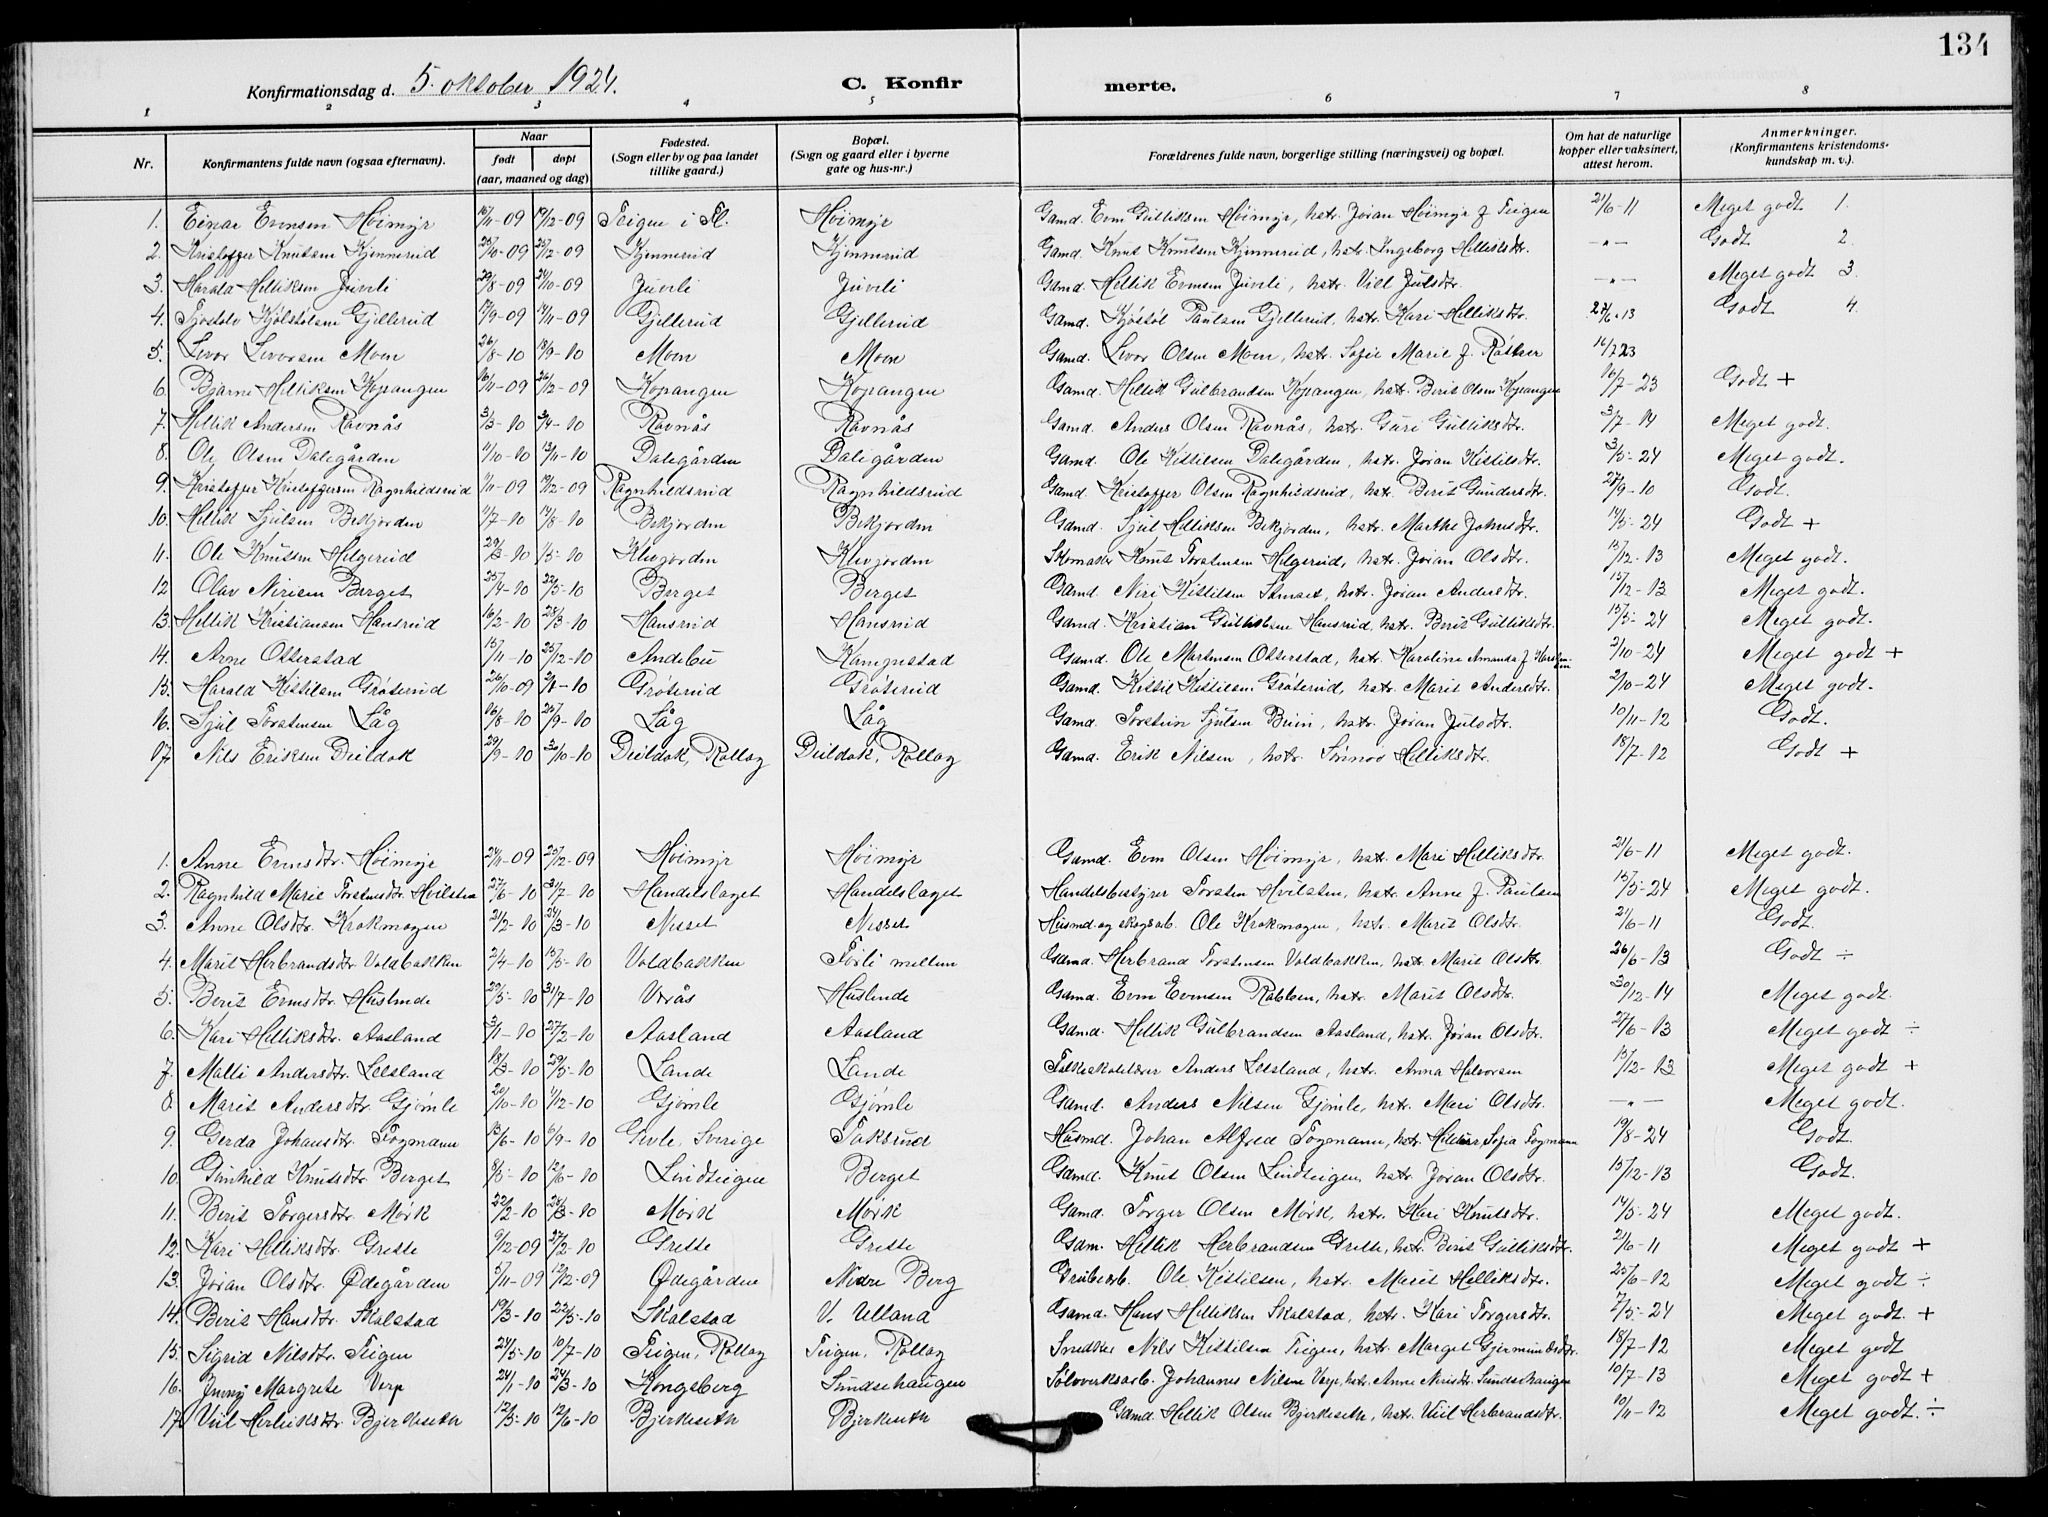 134
Konfirmationsdag d. 5. oktober 1924. C. Konfir merte.
1 2 3 4 5 6 7 8
Nr. Konfirmantens fulde navn (ogsaa efternavn). Naar født døpt (aar, maaned og dag) Fødested. (Sogn eller by og paa landet tillike gaard.) Bopæl. (Sogn og gaard eller i byerne gate og hus-nr.) Forældrenes fulde navn, borgerlige stilling (næringsvei) og bopæl. Om hat de naturlige kopper eller vaksinert, attest herom. Anmerkninger. (Konfirmantens kristendoms-kundskap m. v.).
1. Einar Evensen Höimyr 15/11-09 19/12-09 Teigen i Fl. Höimyr Gamd. Even Gulliksen Höimyr, hstr. Jöran Höimyr f. Teigen 21/6-11 Meget godt 1.
2. Kristoffer Knutsen Kjennerud 25/10-09 25/12-09 Kjennerud Kjennerud Gamd. Knut Knutsen Kjennerud, hstr. Ingeborg Helliksdtr. -„- Godt 2
3. Harald Helliksen Juveli 29/8-09 24/10-09 Juveli Juveli Gamd. Hellik Evensen Juveli, hstr. Viel Julsdtr. -„- Meget godt 3.
4. Tjostolv Kjölstolsen Gjellerud 17/9-09 14/11-09 Gjellerud Gjellerud Gamd. Kjöstöl Paulsen Gjellerud, hstr. Kari Helliksdtr. 27/6-13 Godt 4.
5. Levor Levorsen Moen 26/8-10 18/9-10 Moen Moen Gamd. Levor Olsen Moen, hstr. Sofie Marie f. 16/7 23
6. Bjarne Helliksen Kopangen 16/11-09 26/12-09 Kopangen Kopangen Gamd. Hellik Gulbrandsen Kopangen, hstr. Berit Olsen Kopangen 16/7-23 Godt +
7. Hellik Andersen Ravnås 3/3-10 3/4-10 Ravnås Ravnås Gamd. Anders Olsen Ravnås, hstr. Guri Gulliksdtr. 3/7-14 Meget godt.
8. Ole Olsen Dalegården 11/10-10 13/11-10 Dalegården Dalegården Gamd. Ole Kittilsen Dalegården, hstr. Jöran Kittilsdtr. 3/5-24 Meget godt.
9. Kristoffer Kristoffersen Ragnhildsrud 1/11-09 19/12-09 Ragnhildsrud Ragnhildsrud Gamd. Kristoffer Olsen Ragnhildsrud, hstr. Berit Gundersdtr. 28/9-10 Godt.
10. Hellik Sjulsen Bekjorden 11/7-10 14/8-10 Bekjorden Bekjorden Gamd. Sjul Helliksen Bekjorden, hstr. Marthe Johnsdtr. 14/5-24 Godt +
11. Ole Knutsen Helgerud 29/3-10 1/5-10 Klevjorden Klevjorden Skomaker Knut Torstensen Helgerud, hstr. Jöran Olsdtr. 15/12-13 Meget godt.
12 Olav Nirisen Berget 25/4-10 22/5-10 Berget Berget Gamd Niri Kittilsen, hstr. Jöran Andersdtr. 15/12-13 Meget godt.
13. Hellik Kristiansen Hansrud 16/2-10 28/3-10 Hansrud Hansrud Gamd. Kristian Gulliksen Hansrud, hstr. Berit Gulliksdtr. 15/5-24 Meget godt.
14. Arne Otterstad 15/11-10 25/12-10 Andebu Kongnstad Gamd. Ole Martensen Otterstad, hstr. Karoline Amanda f. 2/10-24 Meget godt +
15. Harald Kittilsen Gröterud 26/10-09 2/1-10 Gröterud Gröterud Gamd. Kittil Kittilsen Gröterud, hstr. Marit Andersdtr. 2/10-24 Meget godt.
16. Sjul Torstensen Låg 16/8-10 25/9-10 Låg Låg Gamd. Torstein Sjulsen Bleien, hstr. Jöran Julsdtr. 10/11-12 Godt.
17 Nils Eriksen Deildok 29/9-10 30/10-10 Deildok, Rollag Deildok, Rollag Gamd. Erik Nilsen, hstr. Sönnöv Helliksdtr. 18/7-12 Godt +
1. Anne Evensdtr. Höimyr 24/11-09 25/12-09 Höimyr Höimyr Gamd. Even Olsen Höimyr, hstr. Mari Helliksdtr. 21/6-11 Meget godt.
2. Ragnhild Marie Torstensdtr. Hvilsten 27/6-10 31/7-10 Handelslaget Handelslaget Handelsbestyrer Torsten Hvilsten, hstr. Anne f. Paulsen 15/5-24 Meget godt.
3. Anne Olsdtr. Krokmogen 21/2-10 24/3-10 Messet Messet Husmd og skogsarb. Ole Krokmogen, hstr. Marit Olsdtr. 21/6-11 Godt.
4. Marit Herbrandsdtr. Voldbakken 2/4-10 15/5-10 Voldbakken Forli mellem Gamd. Herbrand Torstensen Voldbakken, hstr. Marit Olsdtr. 26/6-13 Godt ÷
5. Berit Evensdtr. Huslende 29/5-10 31/7-10 Vrås Huslende Gamd. Even Evensen Rabben, hstr. Marit Olsdtr. 30/12-14 Meget godt.
6. Kari Helliksdtr. Aasland 3/1-10 27/2-10 Aasland Aasland Gamd. Hellik Gulbrandsen Aasland, hstr. Jöran Olsdtr. 27/6-13 Meget godt ÷
7. Malli Andersdtr. Lesland 18/3-10 29/5-10 Lande Lande Folkeskolelærer Anders Lesland, hstr. Anna Halvorsen 15/12-13 Meget godt +
8. Marit Andersdtr. Gjömle 20/10-10 11/12-10 Gjömle Gjömle Gamd. Anders Nilsen Gjömle, hstr. Mari Olsdtr. -„- Meget godt.
9. Gerda Johansdtr. Fogmann 13/6-10 6/9-10 Gevle, Sverige Taksrud Husmd. Johan Alfred Fogmann, hstr. Hildur Sofia Fogmann 19/8-24 Godt.
10. Gunhild Knutsdtr. Berget 8/5-10 12/6-10 Lindteigen Berget Gamd. Knut Olsen Lindteigen, hstr. Jöran Olsdtr. 15/12-13 Godt.
11. Berit Torgersdtr. Mörk 22/2-10 28/3-10 Mörk Mörk Gamd. Torger Olsen Mörk, hstr. Kari Knutsdtr. 14/5-24 Meget godt.
12. Kari Helliksdtr. Grette 9/12-09 27/2-10 Grette Grette Gam. Hellik Herbrandsen Grette, hstr. Berit Gulliksdtr. 21/6-11 Meget godt +
13. Jöran Olsdtr. Ødegården 5/11-09 12/12-09 Ødegården Nedre Berg Grubearb. Ole Kittilsen, hstr. Marit Helliksdtr. 25/6-12 Meget godt ÷
14. Berit Hansdtr. Skalstad 19/3-10 22/5-10 Skalstad V. Ulland Gamd. Hans Helliksen Skalstad, hstr. Kari Torgersdtr. 7/5-24 Meget godt. +
15. Sigrid Nilsdtr. Teigen 24/5-10 10/7-10 Teigen, Rollag Teigen, Rollag Snedker Nils Kittilsen Teigen, hstr. Marget Gjermundsdtr. 18/7-12 Meget godt
16. Jenny Margrete Verp 24/1-10 24/3-10 Kongsberg Sundsehaugen Sölvverksarb. Johannes Nilsen Verp, hstr. Anne Nirisdtr. Sundsehaugen 10/7-13 Meget godt +
17. Viel Helliksdtr. Bjerkeseth 12/5-10 12/6-10 Bjerkeseth Bjerkeseth Gamd. Hellik Olsen Bjerkeseth, hstr. Viel Herbrandsdtr. 10/11-12 Meget godt. ÷